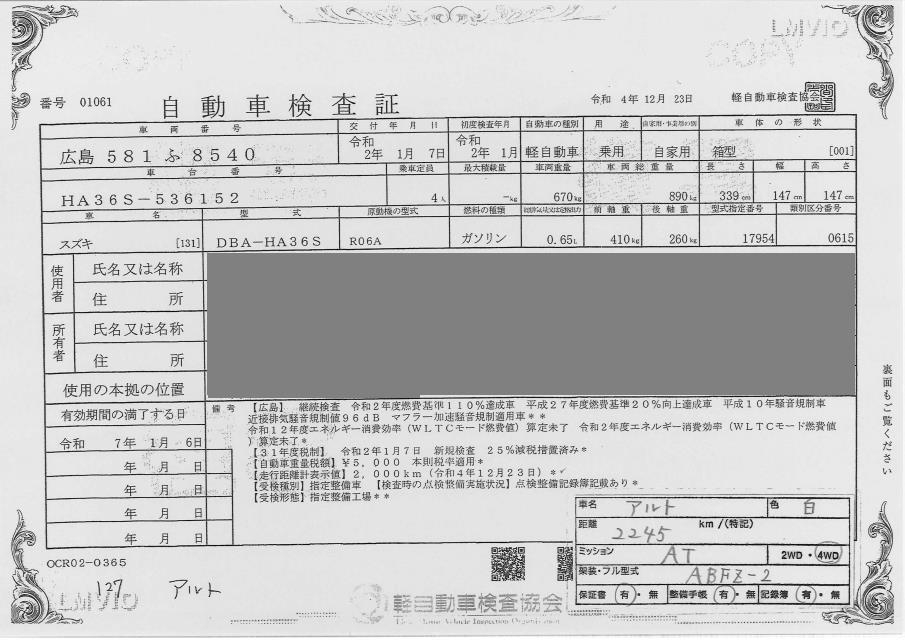 LMVIO
COPY
番号 01061
自動車検査証
令和 4年 12月 23日
軽自動車検査協会
車両番号 交付年月日 初度検査年月 自動車の種別 用途 自家用・事業用の別 車体の形状
広島 581 ふ 8540 令和 2年 1月 7日 令和 2年 1月 軽自動車 乗用 自家用 箱型 [001]
車台番号 乗車定員 最大積載量 車両重量 車両総重量 長さ 幅 高さ
HA36S-536152 4人 -kg 670kg 890kg 339cm 147cm 147cm
車名 型式 原動機の型式 燃料の種類 総排気量又は定格出力 前軸重 後軸重 型式指定番号 類別区分番号
スズキ [131] DBA-HA36S R06A ガソリン 0.65L 410kg 260kg 17954 0615
使用者 氏名又は名称
住所
所有者 氏名又は名称
住所
使用の本拠の位置
有効期間の満了する日
令和 7年 1月 6日
年 月 日
年 月 日
年 月 日
年 月 日
備考
【広島】 継続検査 令和2年度燃費基準110%達成車 平成27年度燃費基準20%向上達成車 平成10年騒音規制車
近接排気騒音規制値96dB マフラー加速騒音規制適用車**
令和12年度エネルギー消費効率(WLTCモード燃費値)算定未了 令和2年度エネルギー消費効率(WLTCモード燃費値
)算定未了*
【31年度税制】 令和2年1月7日 新規検査 25%減税措置済み*
【自動車重量税額】¥5,000 本則税率適用*
【走行距離計表示値】2,000km(令和4年12月23日)*
【受検種別】指定整備車 【検査時の点検整備実施状況】点検整備記録簿記載あり*
【受検形態】指定整備工場**
裏面もご覧ください
車名 アルト 色 白
距離 2245 km/(特記)
ミッション AT 2WD・4WD
架装・フル型式 ABFZ-2
保証書 有・無 整備手帳 有・無 記録簿 有・無
OCR02-0365
127 アルト
LMVIO
軽自動車検査協会
Light Motor Vehicle Inspection Organization